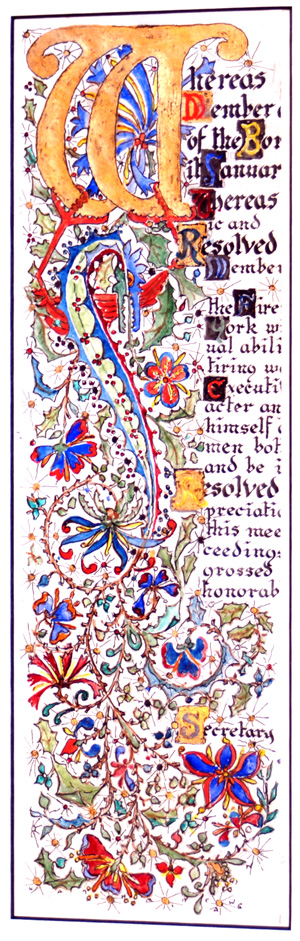 Whereas
Member
of the Bor
ith Januar
Whereas
ic and
Resolved
Member
the Fire
York w
ual abili
tiring w
Executi
acter an
himself
men bot
and be i
Resolved
preciatio
this mee
ceeding
grossed
honorab
Secretary